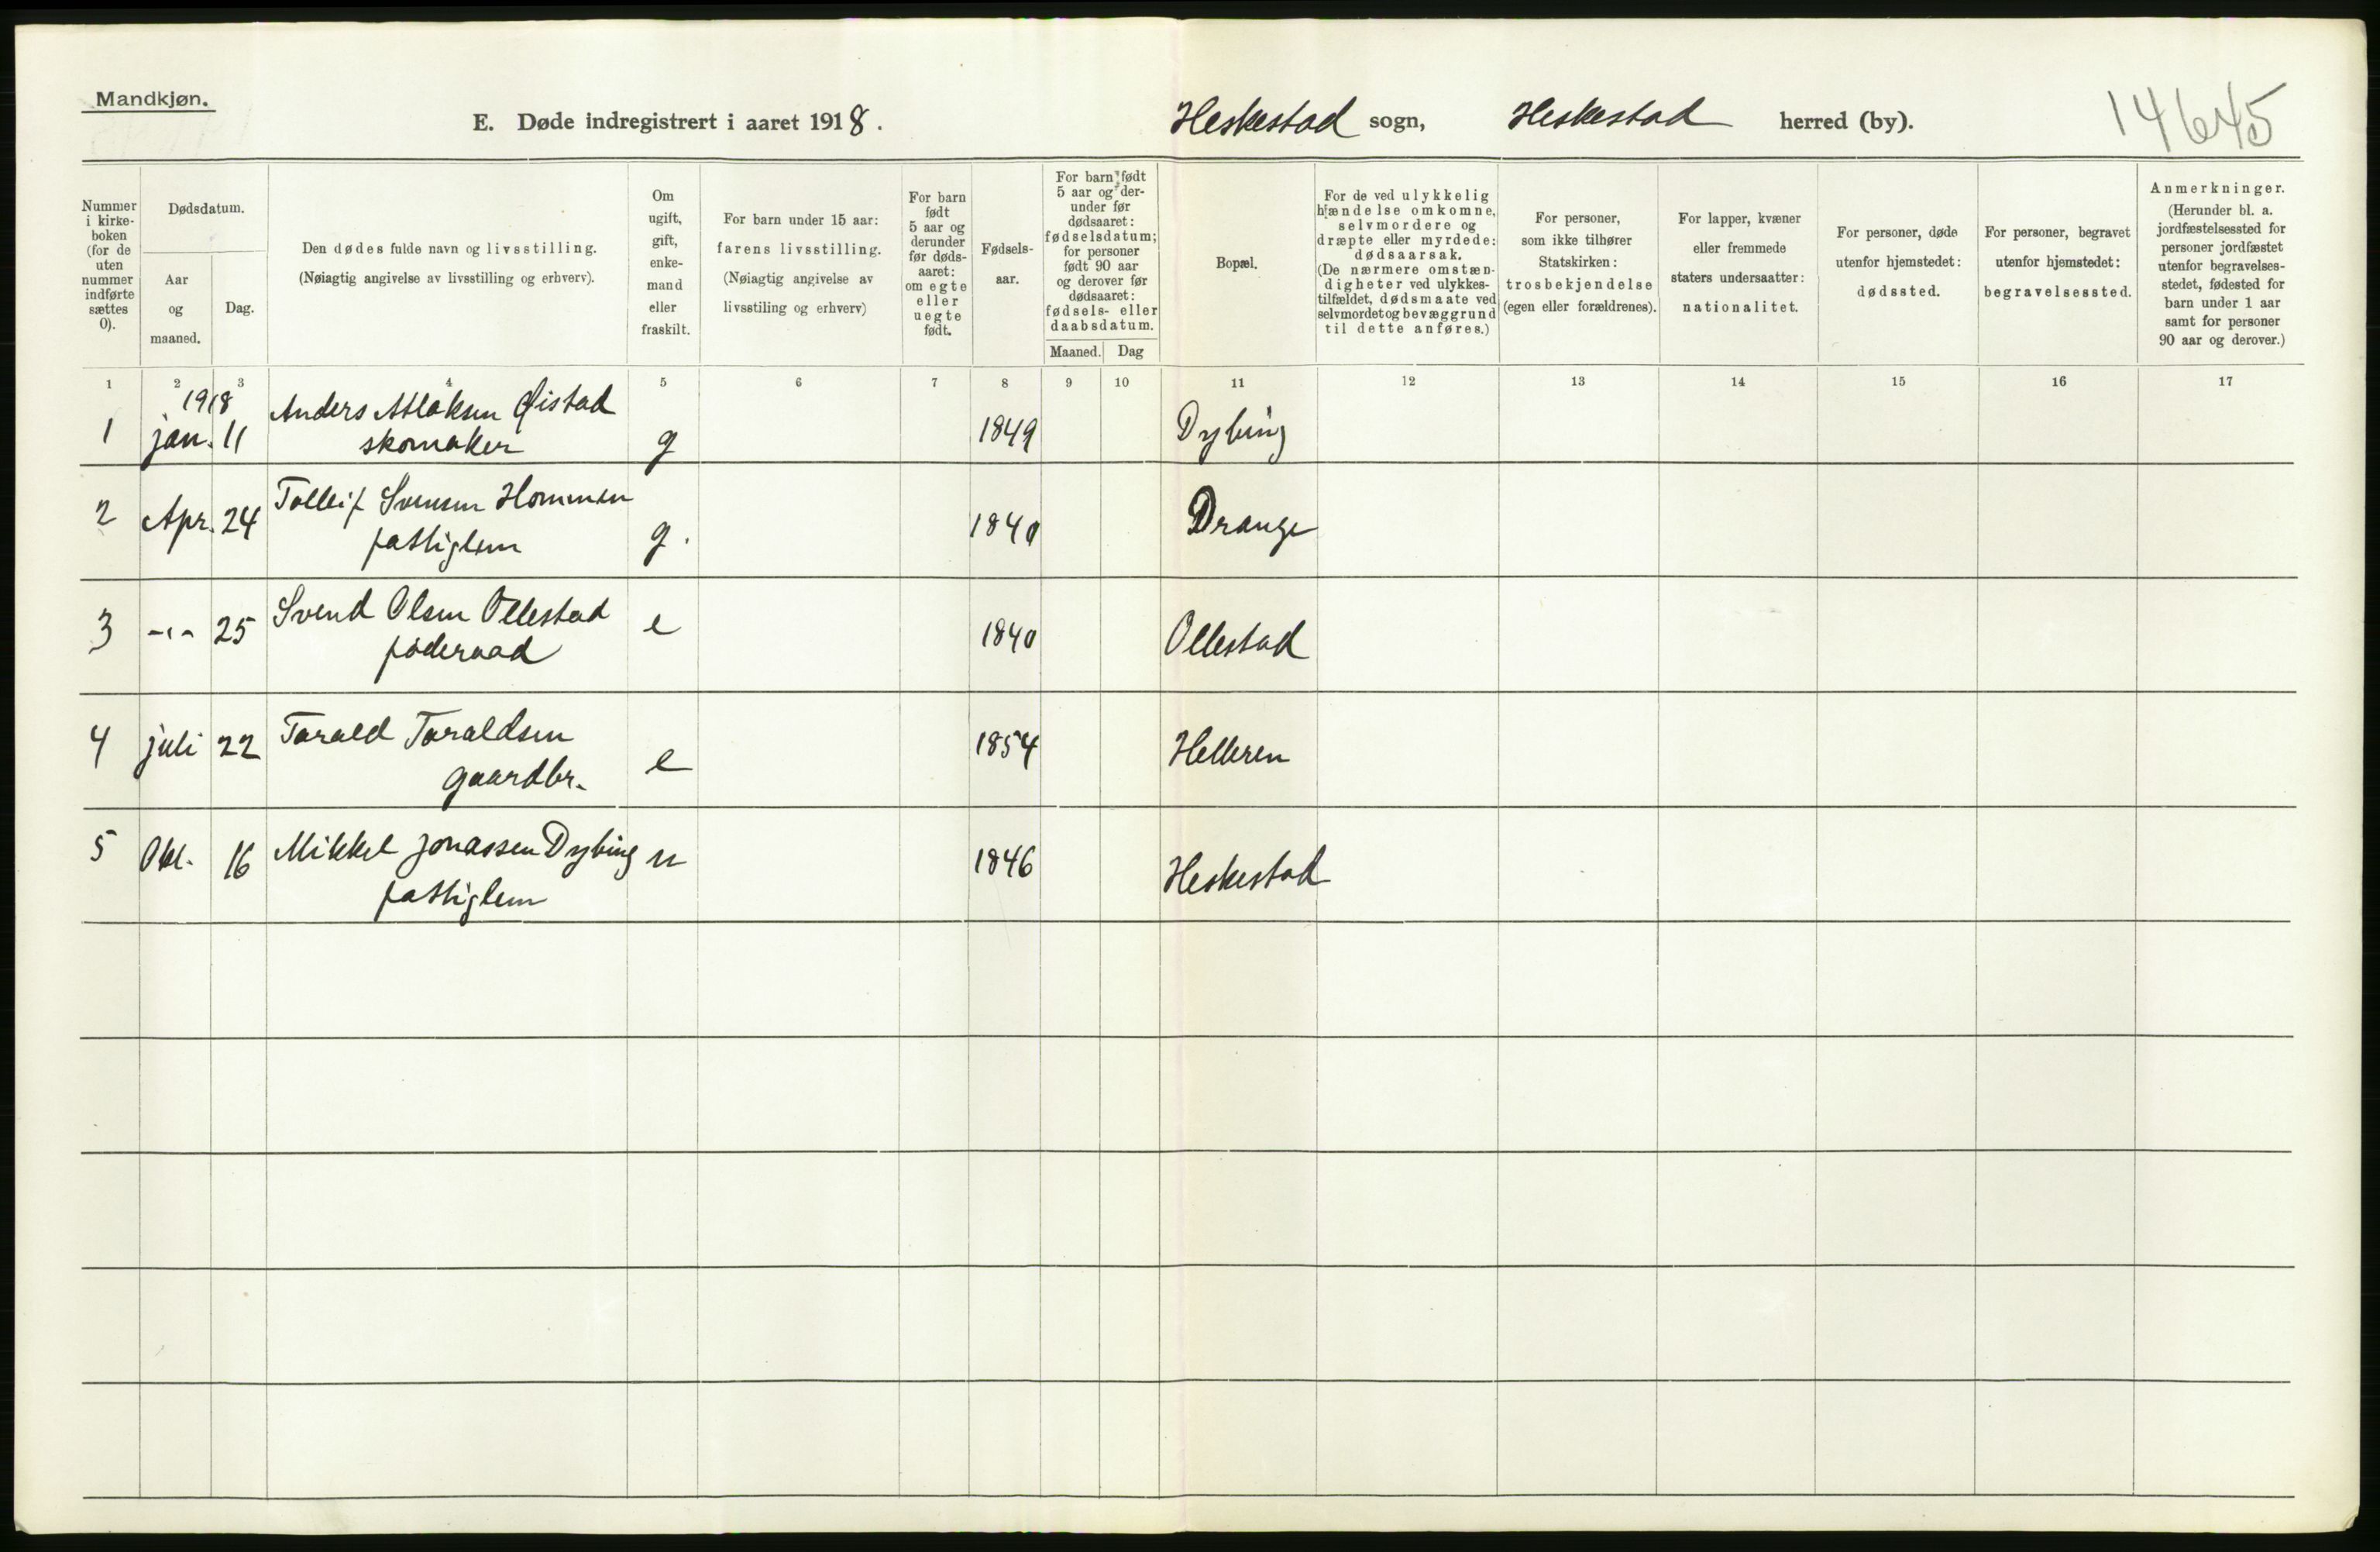 Mandkjøn.
E. Døde indregistrert i aaret 1918.
Heskestad sogn, Heskestad herred (by).
14645
Nummer i kirke-boken (for de uten nummer indførte sættes 0).
Dødsdatum.
Aar og maaned.
Dag.
Den dødes fulde navn og livsstilling.
(Nøiagtig angivelse av livsstilling og erhverv).
Om ugift, gift, enke-mand eller fraskilt.
For barn under 15 aar:
farens livsstilling.
(Nøiagtig angivelse av
livsstiling og erhverv)
For barn født 5 aar og derunder før døds-aaret: om egte eller uegte født.
Fødsels-aar.
For barn født 5 aar og der-under før dødsaaret: fødselsdatum; for personer født 90 aar og derover før dødsaaret: fødsels- eller daabsdatum.
Maaned. Dag
Bopæl.
For de ved ulykkelig hændelse omkomne, selvmordere og dræpte eller myrdede: dødsaarsak. (De nærmere omstæn-digheter ved ulykkes-tilfældet, dødsmaate ved selvmordet og bevæggrund til dette anføres.)
For personer, som ikke tilhører Statskirken: trosbekjendelse (egen eller forældrenes).
For lapper, kvæner eller fremmede staters undersaatter: nationalitet.
For personer, døde utenfor hjemstedet: dødssted.
For personer, begravet utenfor hjemstedet: begravelsessted.
Anmerkninger.
(Herunder bl. a. jordfæstelsessted for personer jordfæstet utenfor begravelses-stedet, fødested for barn under 1 aar samt for personer 90 aar og derover.)
1 2 3 4 5 6 7 8 9 10 11 12 13 14 15 16 17
1918
1 jan. 11 Anders Atlaksen Øistad
skomaker g 1849 Dybing
2 Apr. 24 Tolleif Svensen Hommen
fattiglem g. 1840 Drange
3 -"- 25 Svend Olsen Ollestad
føderaad e 1840 Ollestad
4 juli 22 Tarald Taraldsen
gaardbr. e 1854 Helleren
5 Okt. 16 Mikkel Jonassen Dybing u 1846 Heskestad
fattiglem